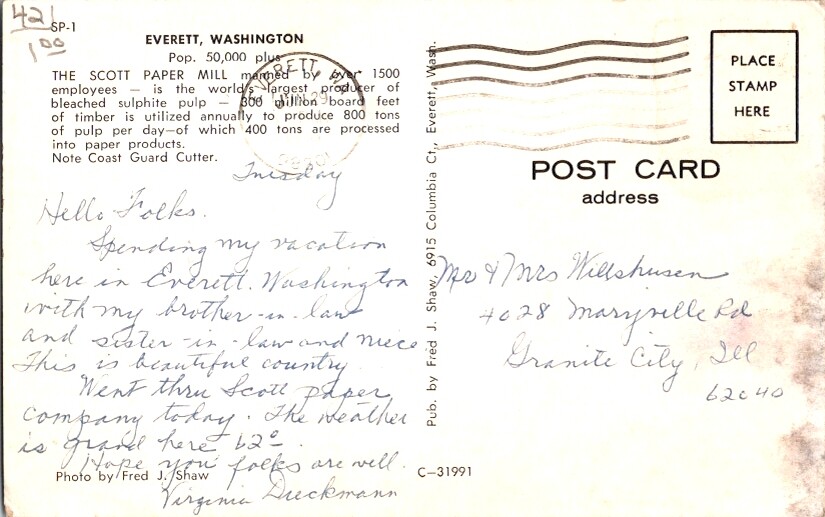 421
SP-1
1 00
EVERETT, WASHINGTON
Pop. 50,000 plus
THE SCOTT PAPER MILL manned by over 1500
employees — is the world's largest producer of
bleached sulphite pulp — 300 million board feet
of timber is utilized annually to produce 800 tons
of pulp per day—of which 400 tons are processed
into paper products.
Note Coast Guard Cutter.
EVERETT, WA
JUN 29
Tuesday
Hello Folks.
Spending my vacation
here in Everett. Washington
with my brother-in-law
and sister-in-law and niece
This is beautiful country.
Went thru Scott paper
company today. The weather
is grand here 62°.
Hope you folks are well.
Photo by Fred J. Shaw
Virginia Dieckmann
Pub. by Fred J. Shaw, 6915 Columbia Ct., Everett, Wash.
C-31991
PLACE
STAMP
HERE
POST CARD
address
Mr & Mrs Willshusen
4028 Maryville Rd
Granite City, Ill
62040